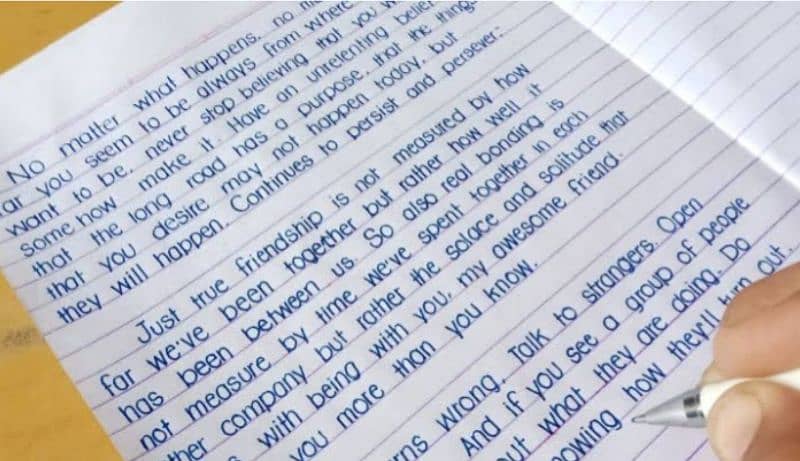 No matter what happens, no
ar you seem to be always from where
want to be, never stop believing that you
some how make it. Have an unrelenting
that the long road has a purpose, that the things
that you desire may not happen today, but
they will happen. Continues to persist and persever.
Just true friendship is not measured by how
far we've been together but rather how well it
has been between us. So also real bonding is
not measure by time we've spent together in each
ther company but rather the solace and solitude that
with being with you, my awesome friend.
you more than you know.
rns wrong. Talk to strangers. Open
And if you see a group of people
out what they are doing. Do
owing how they'll turn out.